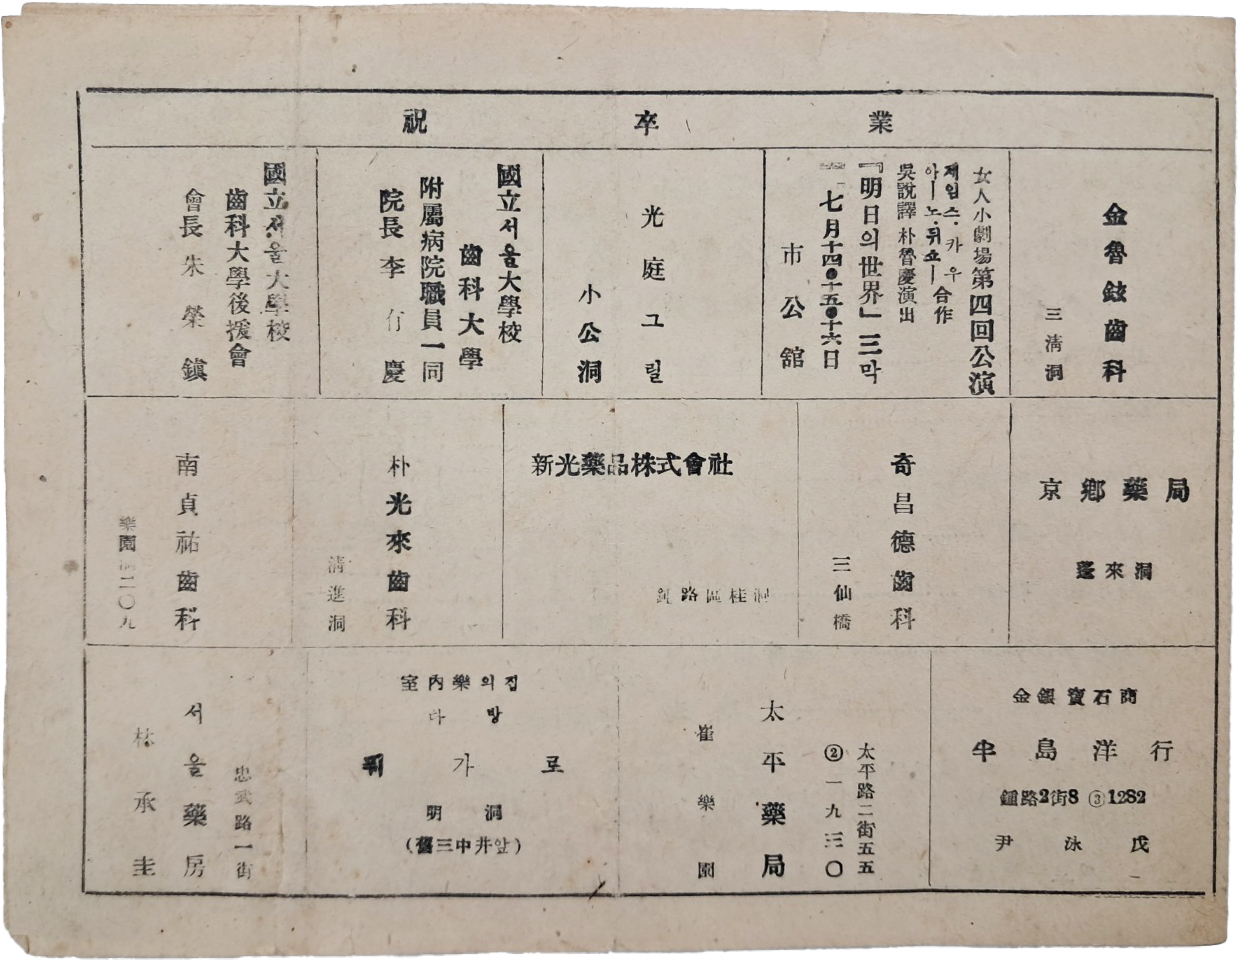 祝卒業
金魯鉉齒科
三淸洞
女人小劇場第四回公演
제임스·카우
아ー노·뒤쇼ー合作
吳說譯 朴魯慶演出
『明日의世界』三막
七月十四●十五●十六日
市公舘
光庭그릴
小公洞
國立서울大學校
齒科大學
附屬病院職員一同
院長 李 慶
國立서울大學校
齒科大學後援會
會長 朱榮鎭
京鄕藥局
蓬來洞
奇昌德齒科
三仙橋
新光藥品株式會社
鍾路區桂洞
朴光來齒科
淸進洞
南貞祐齒科
樂園洞二〇九
金銀寶石商
半島洋行
鍾路2街8 ③1282
尹泳戊
太平路二街五五
②一九三〇
太平藥局
崔樂園
室內樂의집
다방
휘가로
明洞
(舊三中井앞)
忠武路一街
서울藥房
林承圭